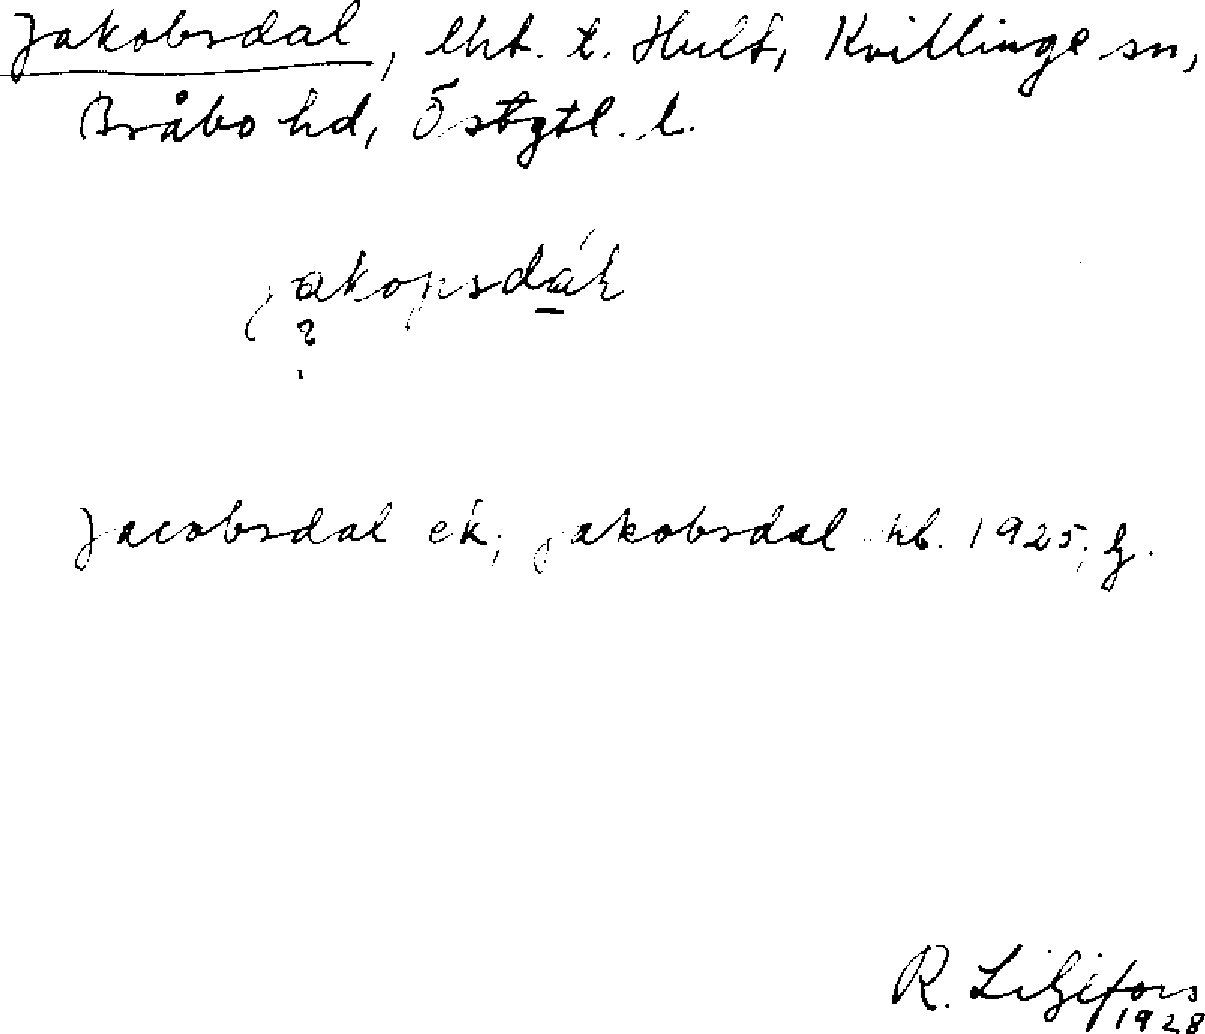 Jakobsdal, lht. t. Hult, Kvillinge sn,
Bråbo hd, Östgtl. l.
jakopsdáł
?
Jacobsdal ek; Jakobsdal hb. 1925;
R. Liljefors
1928